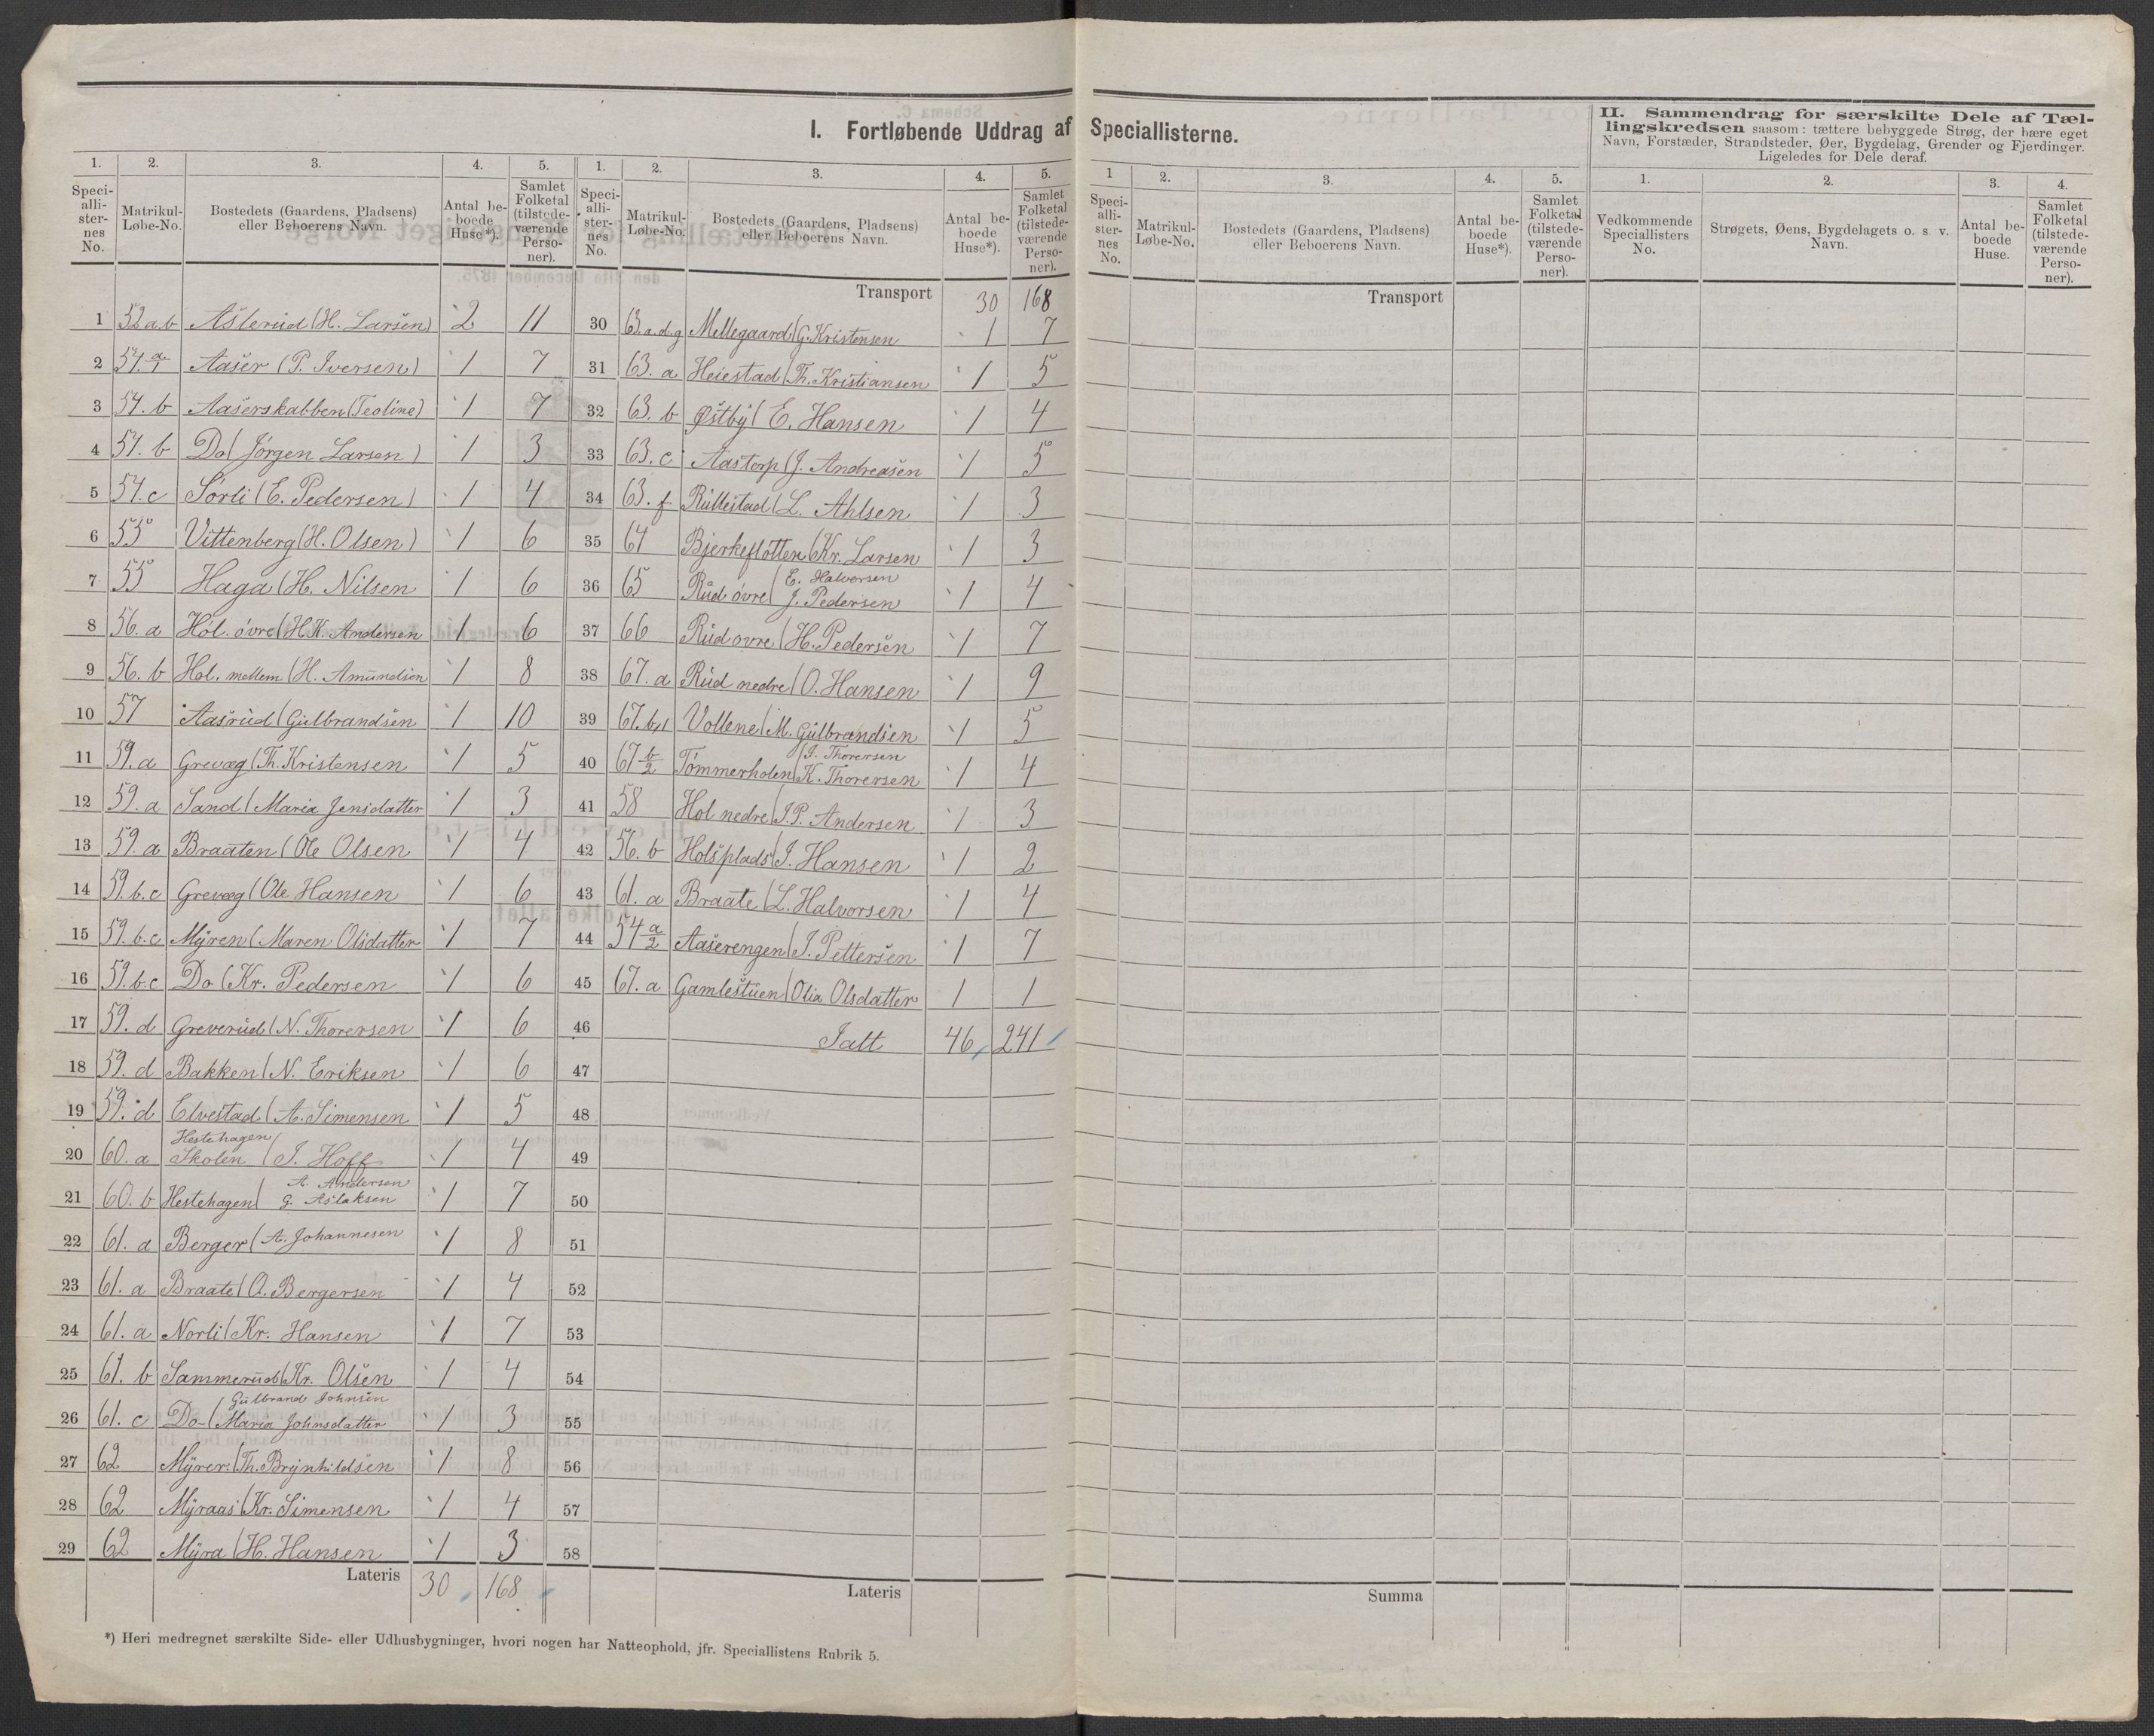 I. Fortløbende Uddrag af Speciallisterne.
II. Sammendrag for særskilte Dele af Tæl-
lingskredsen saasom: tættere bebyggede Strøg, der bære eget
Navn, Forstæder, Strandsteder, Øer, Bygdelag, Grender og Fjerdinger.
Ligeledes for Dele deraf.
1. 2. 3. 4. 5. 1. 2. 3. 4. 5. 1 2. 3. 4. 5. 1. 2. 3. 4.
Speci-alli-ster-nes No. Matrikul-Løbe-No. Bostedets (Gaardens, Pladsens) eller Beboerens Navn. Antal be-boede Huse*). Samlet Folketal (tilstede-værende Perso-ner).
Speci-alli-ster-nes No. Matrikul-Løbe-No. Bostedets (Gaardens, Pladsens) eller Beboerens Navn. Antal be-boede Huse*). Samlet Folketal (tilstede-værende Perso-ner).
Speci-alli-ster-nes No. Matrikul-Løbe-No. Bostedets (Gaardens, Pladsens) eller Beboerens Navn. Antal be-boede Huse*). Samlet Folketal (tilstede-værende Perso-ner).
Vedkommende Speciallisters No. Strøgets, Øens, Bygdelagets o. s. v. Navn. Antal be-boede Huse. Samlet Folketal (tilstede-værende Perso-ner).
1 52 a.b Aslerud (H. Larsen) 2 11
2 54. a/1 Aaser (P. Iversen) 1 7
3 54. b Aaserskabben (Teoline) 1 7
4 54. b Do (Jörgen Larsen) 1 3
5 54. c Sörli (E. Pedersen) 1 4
6 55 Vittenberg (H. Olsen) 1 6
7 55 Haga (H. Nilsen 1 6
8 56. a Hol. övre (H.K. Andersen 1 6
9 56. b Hol. mellem (H. Amundsen 1 8
10 57 Aasrud (Gulbrandsen 1 10
11 59. a Grevæg (Th. Kristensen 1 5
12 59. a Sand (Maria Jensdatter 1 3
13 59. a Braaten (Ole Olsen 1 4
14 59. b.c Grevæg (Ole Hansen 1 6
15 59. b.c Myren (Maren Olsdatter 1 7
16 59. b.c Do (Kr. Pedersen 1 6
17 59. d Greverud (N. Thorersen 1 6
18 59. d Bakken (N. Eriksen 1 6
19 59. d Elvestad (A. Simensen 1 5
20 60. a Hestehagen Skolen (J. Hoff 1 4
21 60. b Hestehagen (A. Andersen G. Aslaksen 1 7
22 61. a Berger (A. Johannesen 1 8
23 61. a Braate (O. Bergersen 1 4
24 61. a Norli (Kr. Hansen 1 7
25 61. b Sammerud (Kr. Olsen 1 4
26 61. c Do- (Gulbrand Johnsen Maria Johnsdatter 1 3
27 62 Myrer. (Th. Brynhildsen 1 8
28 62 Myraas (Kr. Simensen 1 4
29 62 Myra (H. Hansen 1 3
Lateris 30 168
Transport 30 168
30 63. a.d.g Mellegaard (G. Kristensen 1 7
31 63. a Heiestad (Th. Kristiansen 1 5
32 63. b Østby (E. Hansen 1 4
33 63. c Aastorp (J. Andreasen 1 5
34 63. f Rullestad (L. Ahlsen 1 3
35 64 Bjerkeflötten (Kr. Larsen 1 3
36 65 Rud övre (E. Halvorsen J. Pedersen 1 4
37 66 Rud ovre (H. Pedersen 1 7
38 67. a Rud nedre (O. Hansen 1 9
39 67. b,1 Vollene (M. Gulbrandsen 1 5
40 67 b/2 Tömmerholen (J. Thorersen K. Thorersen 1 4
41 58 Hol nedre (J.P. Andersen 1 3
42 56. b Holsplads (J. Hansen 1 2
43 61. a Braate (L. Halvorsen 1 4
44 54 a/2 Aaserengen (J. Pettersen 1 7
45 67. a Gamlestuen (Olia Olsdatter 1 1
46 Ialt 46 241
47
48
49
50
51
52
53
54
55
56
57
58
Lateris
Transport
Summa
*) Heri medregnet særskilte Side- eller Udhusbygninger, hvori nogen har Natteophold, jfr. Speciallistens Rubrik 5.